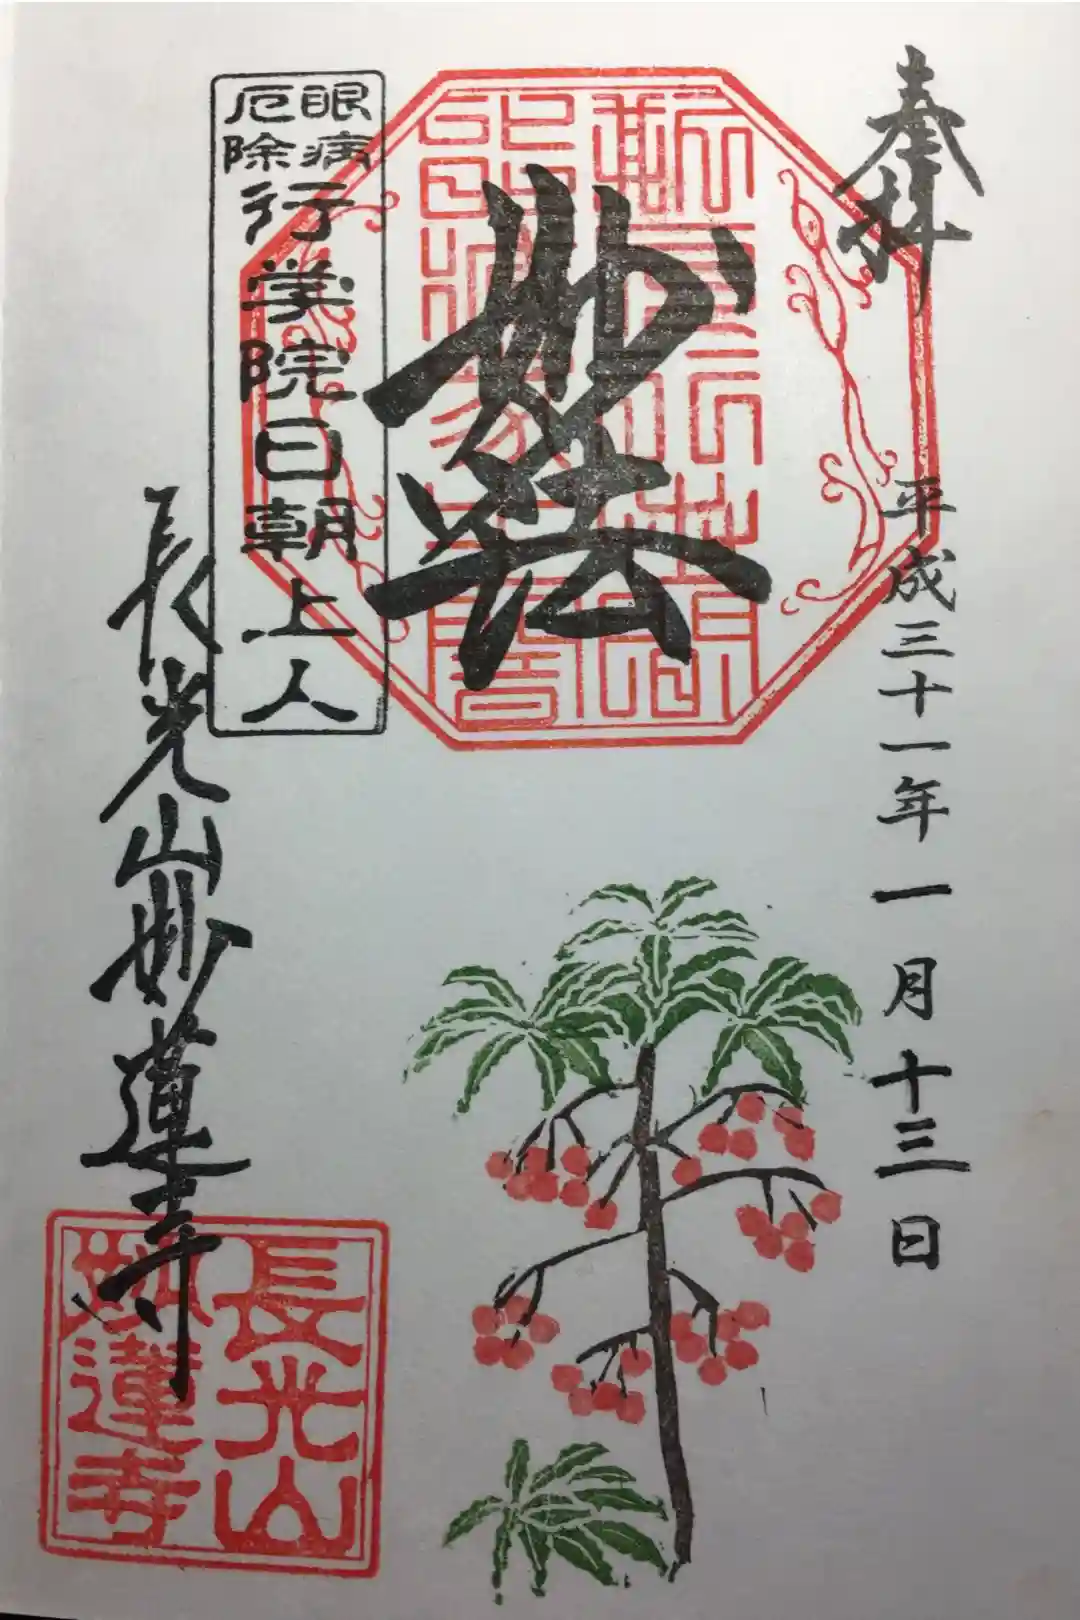 奉拝
平成三十一年一月十三日
妙法
眼病
厄除
行学院日朝上人
長光山妙蓮寺
長光山
妙蓮寺